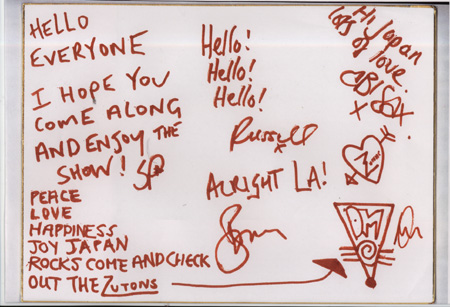 HELLO
EVERYONE
I HOPE YOU
COME ALONG
AND ENJOY THE
SHOW!
PEACE
LOVE
HAPPINESS
JOY JAPAN
ROCKS COME AND CHECK
OUT THE ZUTONS
Hello!
Hello!
Hello!
Russell
x
ALRIGHT LA!
Hi Japan
lots of love.
x x